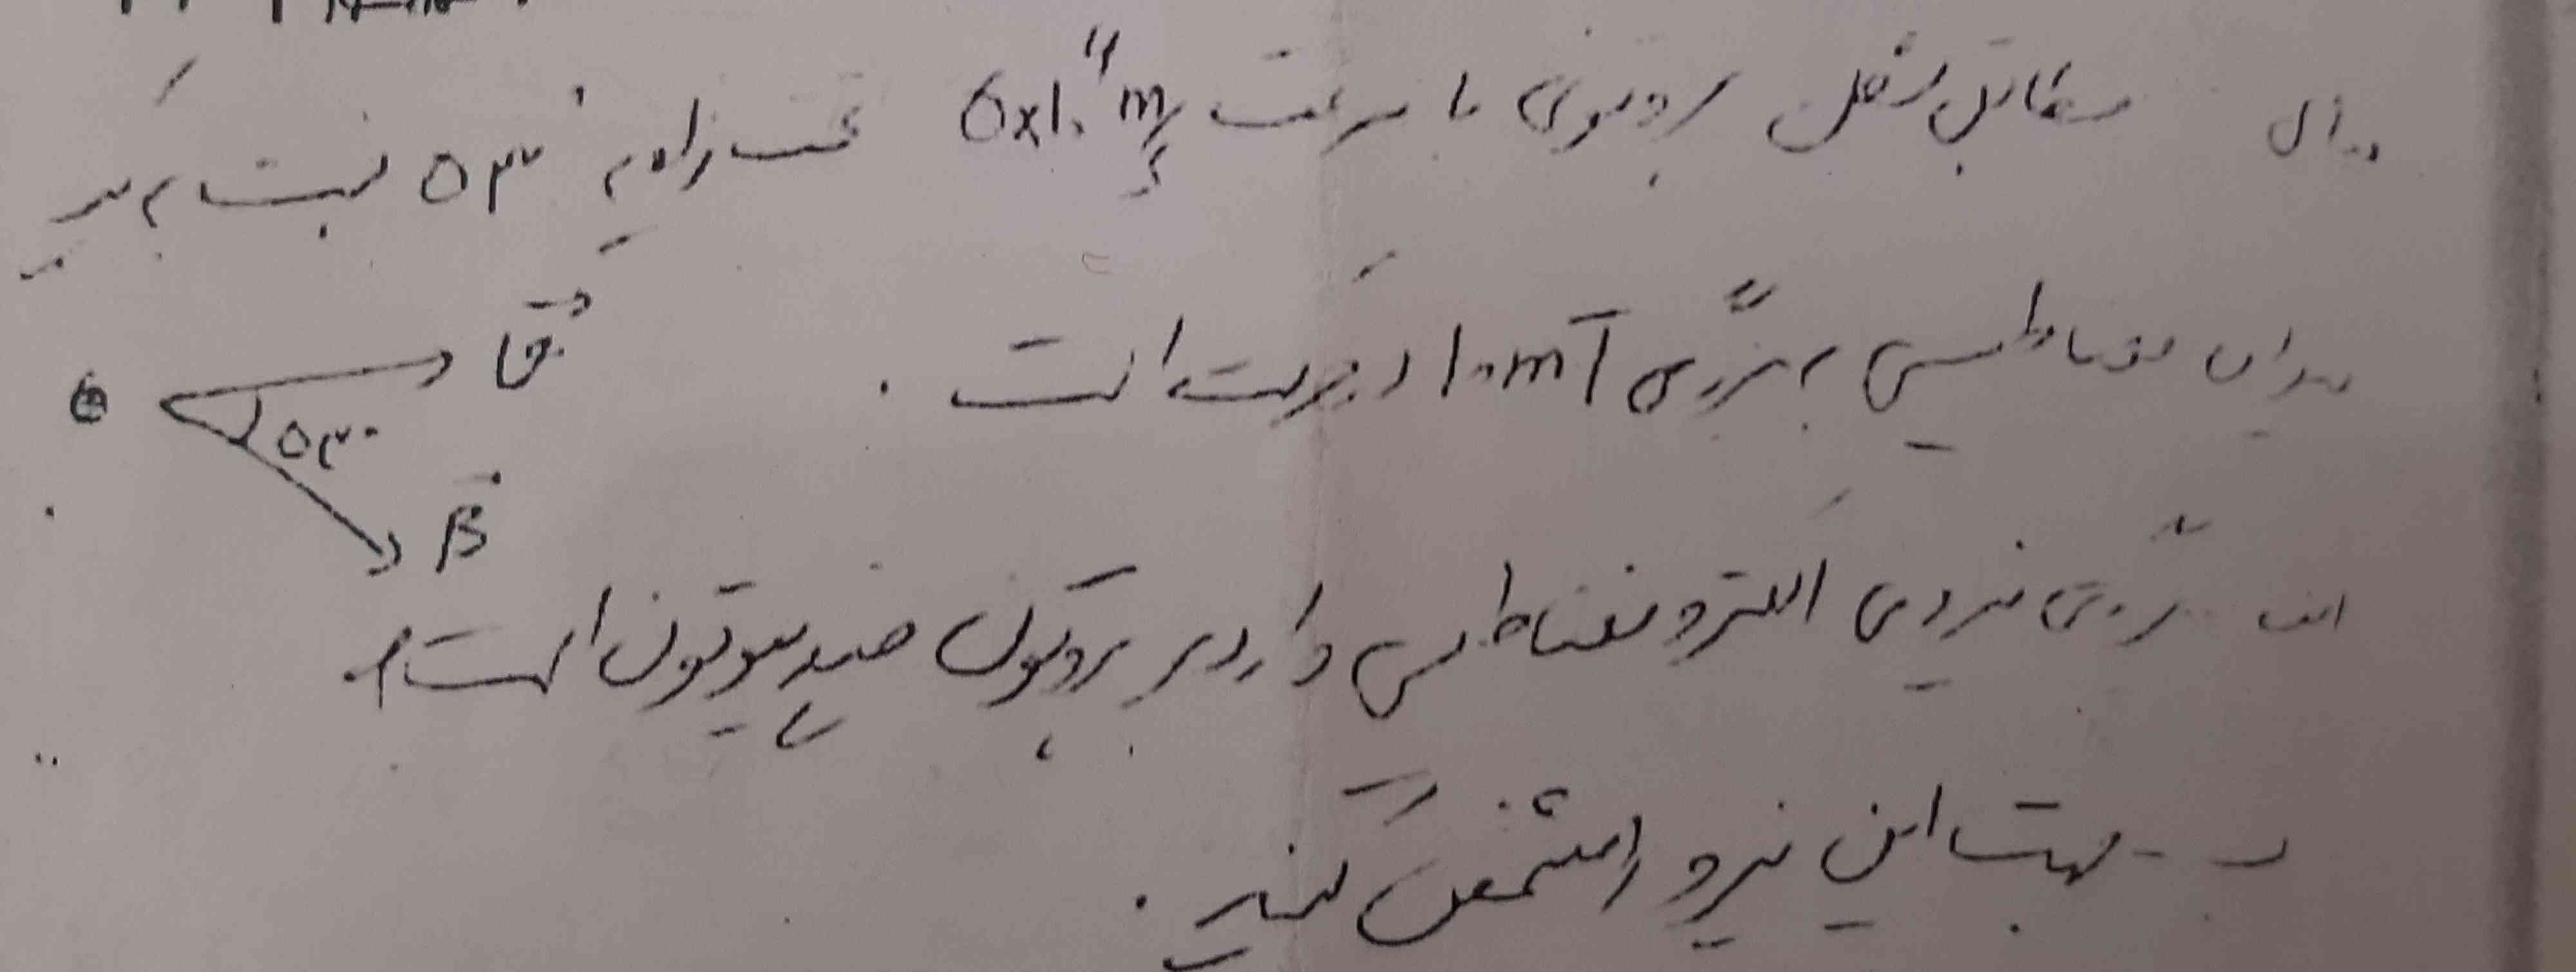 سوال مطابق شکل پروتونی با سرعت ۵×۱۰^۶ m/s تحت زاویه ۵۳° نسبت به یک
میدان مغناطیسی به بزرگی ۱۰mT در حرکت است .
V
⊕
۵۳°
B
الف - بزرگی نیروی الکترومغناطیسی وارد بر پروتون چند نیوتون است؟
ب - جهت این نیرو را مشخص کنید .